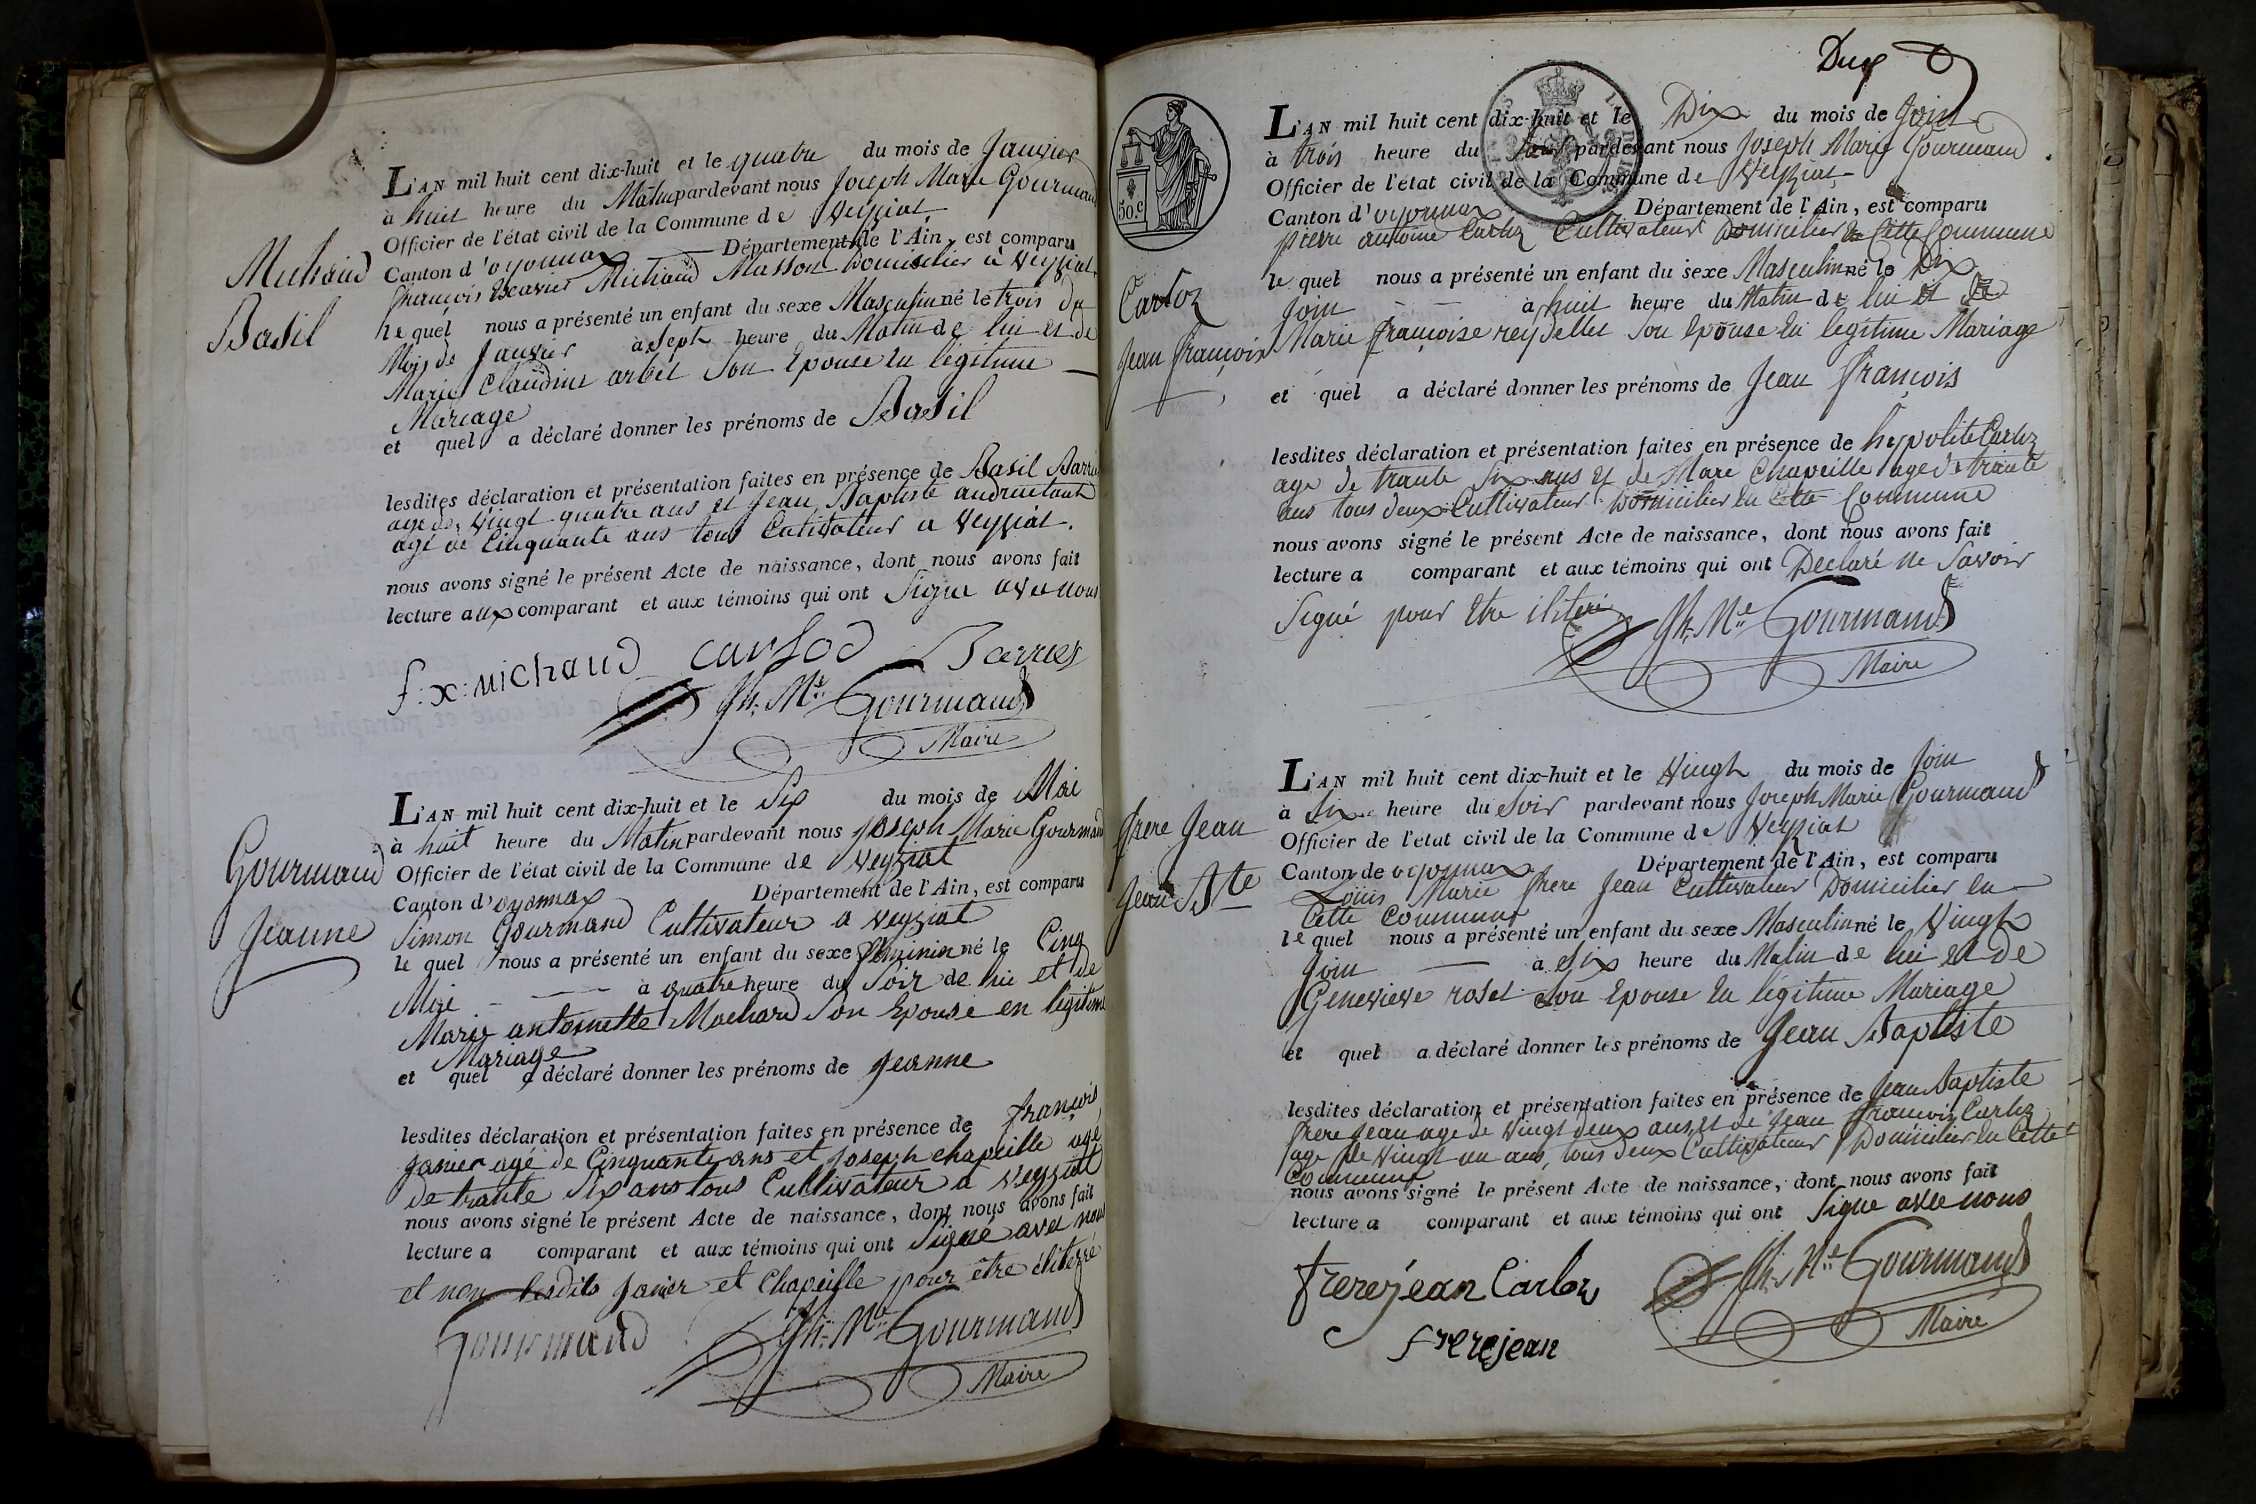 L'AN mil huit cent dix-huit et le quatre du mois de Janvier
à huit heure du Matin pardevant nous Joseph Marie Gourmand
Officier de l'état civil de la Commune de Veyziat
Canton d'oyonnax Département de l'Ain, est comparu
françois Michaud Masson Domicilier à Veyziat
le quel nous a présenté un enfant du sexe Masculin né le trois du
Mois de Janvier à Sept heure du Matin de lui et de
Marie Claudine arbet Son Epouse en légitime
Mariage
et quel a déclaré donner les prénoms de Basil
lesdites déclaration et présentation faites en présence de Basil
agé de Vingt quatre ans et Jean Baptiste
agé de Cinquante ans tous Cutivateur a Veyziat.
nous avons signé le présent Acte de naissance, dont nous avons fait
lecture aux comparant et aux témoins qui ont Signe avec nous
Michaud
Basil
f: x: Michaud Carlod Barries
Jh. Me. Gourmand
Maire
L'AN mil huit cent dix-huit et le Six du mois de Mai
à huit heure du Matin pardevant nous Joseph Marie Gourmand
Officier de l'état civil de la Commune de Veyziat
Canton d'oyonnax Département de l'Ain, est comparu
Simon Gourmand Cultivateur a Veyziat
le quel nous a présenté un enfant du sexe feminin né le Cinq
Mai à quatre heure du Soir de lui et de
Marie antoinette Machard Son Epouse en légitime
Mariage
et quel a déclaré donner les prénoms de Jeanne
lesdites déclaration et présentation faites en présence de françois
Janier agé de Cinquante ans et Joseph chapeille agé
de trante Six ans tous Cultivateur a Veyziat
nous avons signé le présent Acte de naissance, dont nous avons fait
lecture a comparant et aux témoins qui ont Signé avec nous
et non lesdits Janier et Chapeille pour être éliterré
Gourmand
Jeanne
Gourmand Jh. Me. Gourmand
Maire
Dux
50.c
L'AN mil huit cent dix-huit et le Dix du mois de Join
à trois heure du Soir pardevant nous Joseph Marie Gourmand
Officier de l'état civil de la Commune de Veyziat
Canton d'oyonnax Département de l'Ain, est comparu
pierre antoine Carloz Cultivateur Domicilier en Cette Commune
le quel nous a présenté un enfant du sexe Masculin né le Dix
Join à huit heure du Matin de lui et de
Marie françoise reydellet Son Epouse En legitime Mariage
et quel a déclaré donner les prénoms de Jean François
lesdites déclaration et présentation faites en présence de hypolite Carloz
age de trante Six ans et de Marc Chapeille age de trante
ans tous deux Cultivateur Domicilier En Cette Commune
nous avons signé le présent Acte de naissance, dont nous avons fait
lecture a comparant et aux témoins qui ont Declaré ne Savoir
Signé pour Etre iliteré
Carloz
Jean françois
Jh. Me. Gourmand
Maire
L'AN mil huit cent dix-huit et le Vingt du mois de Join
à Six heure du Soir pardevant nous Joseph Marie Gourmand
Officier de l'état civil de la Commune de Veyziat
Canton de oyonnax Département de l'Ain, est comparu
Louis Marie frere Jean Cultivateur Domicilier en
Cette Commune
le quel nous a présenté un enfant du sexe Masculin né le Vingt
Join à Six heure du Matin de lui et de
Genevieve roset Son Epouse En légitime Mariage
et quel a déclaré donner les prénoms de Jean Baptiste
lesdites déclaration et présentation faites en présence de Jean Baptiste
frere Jean age de Vingt deux ans et de Jean françois Carloz
age de Vingt un ans, tous deux Cultivateur Domicilier En Cette
Commune
nous avons signé le présent Acte de naissance, dont nous avons fait
lecture a comparant et aux témoins qui ont Signe avec nous
frere Jean
Jean Bte
frerejean Carloz
frerejean
Jh. Me. Gourmand
Maire